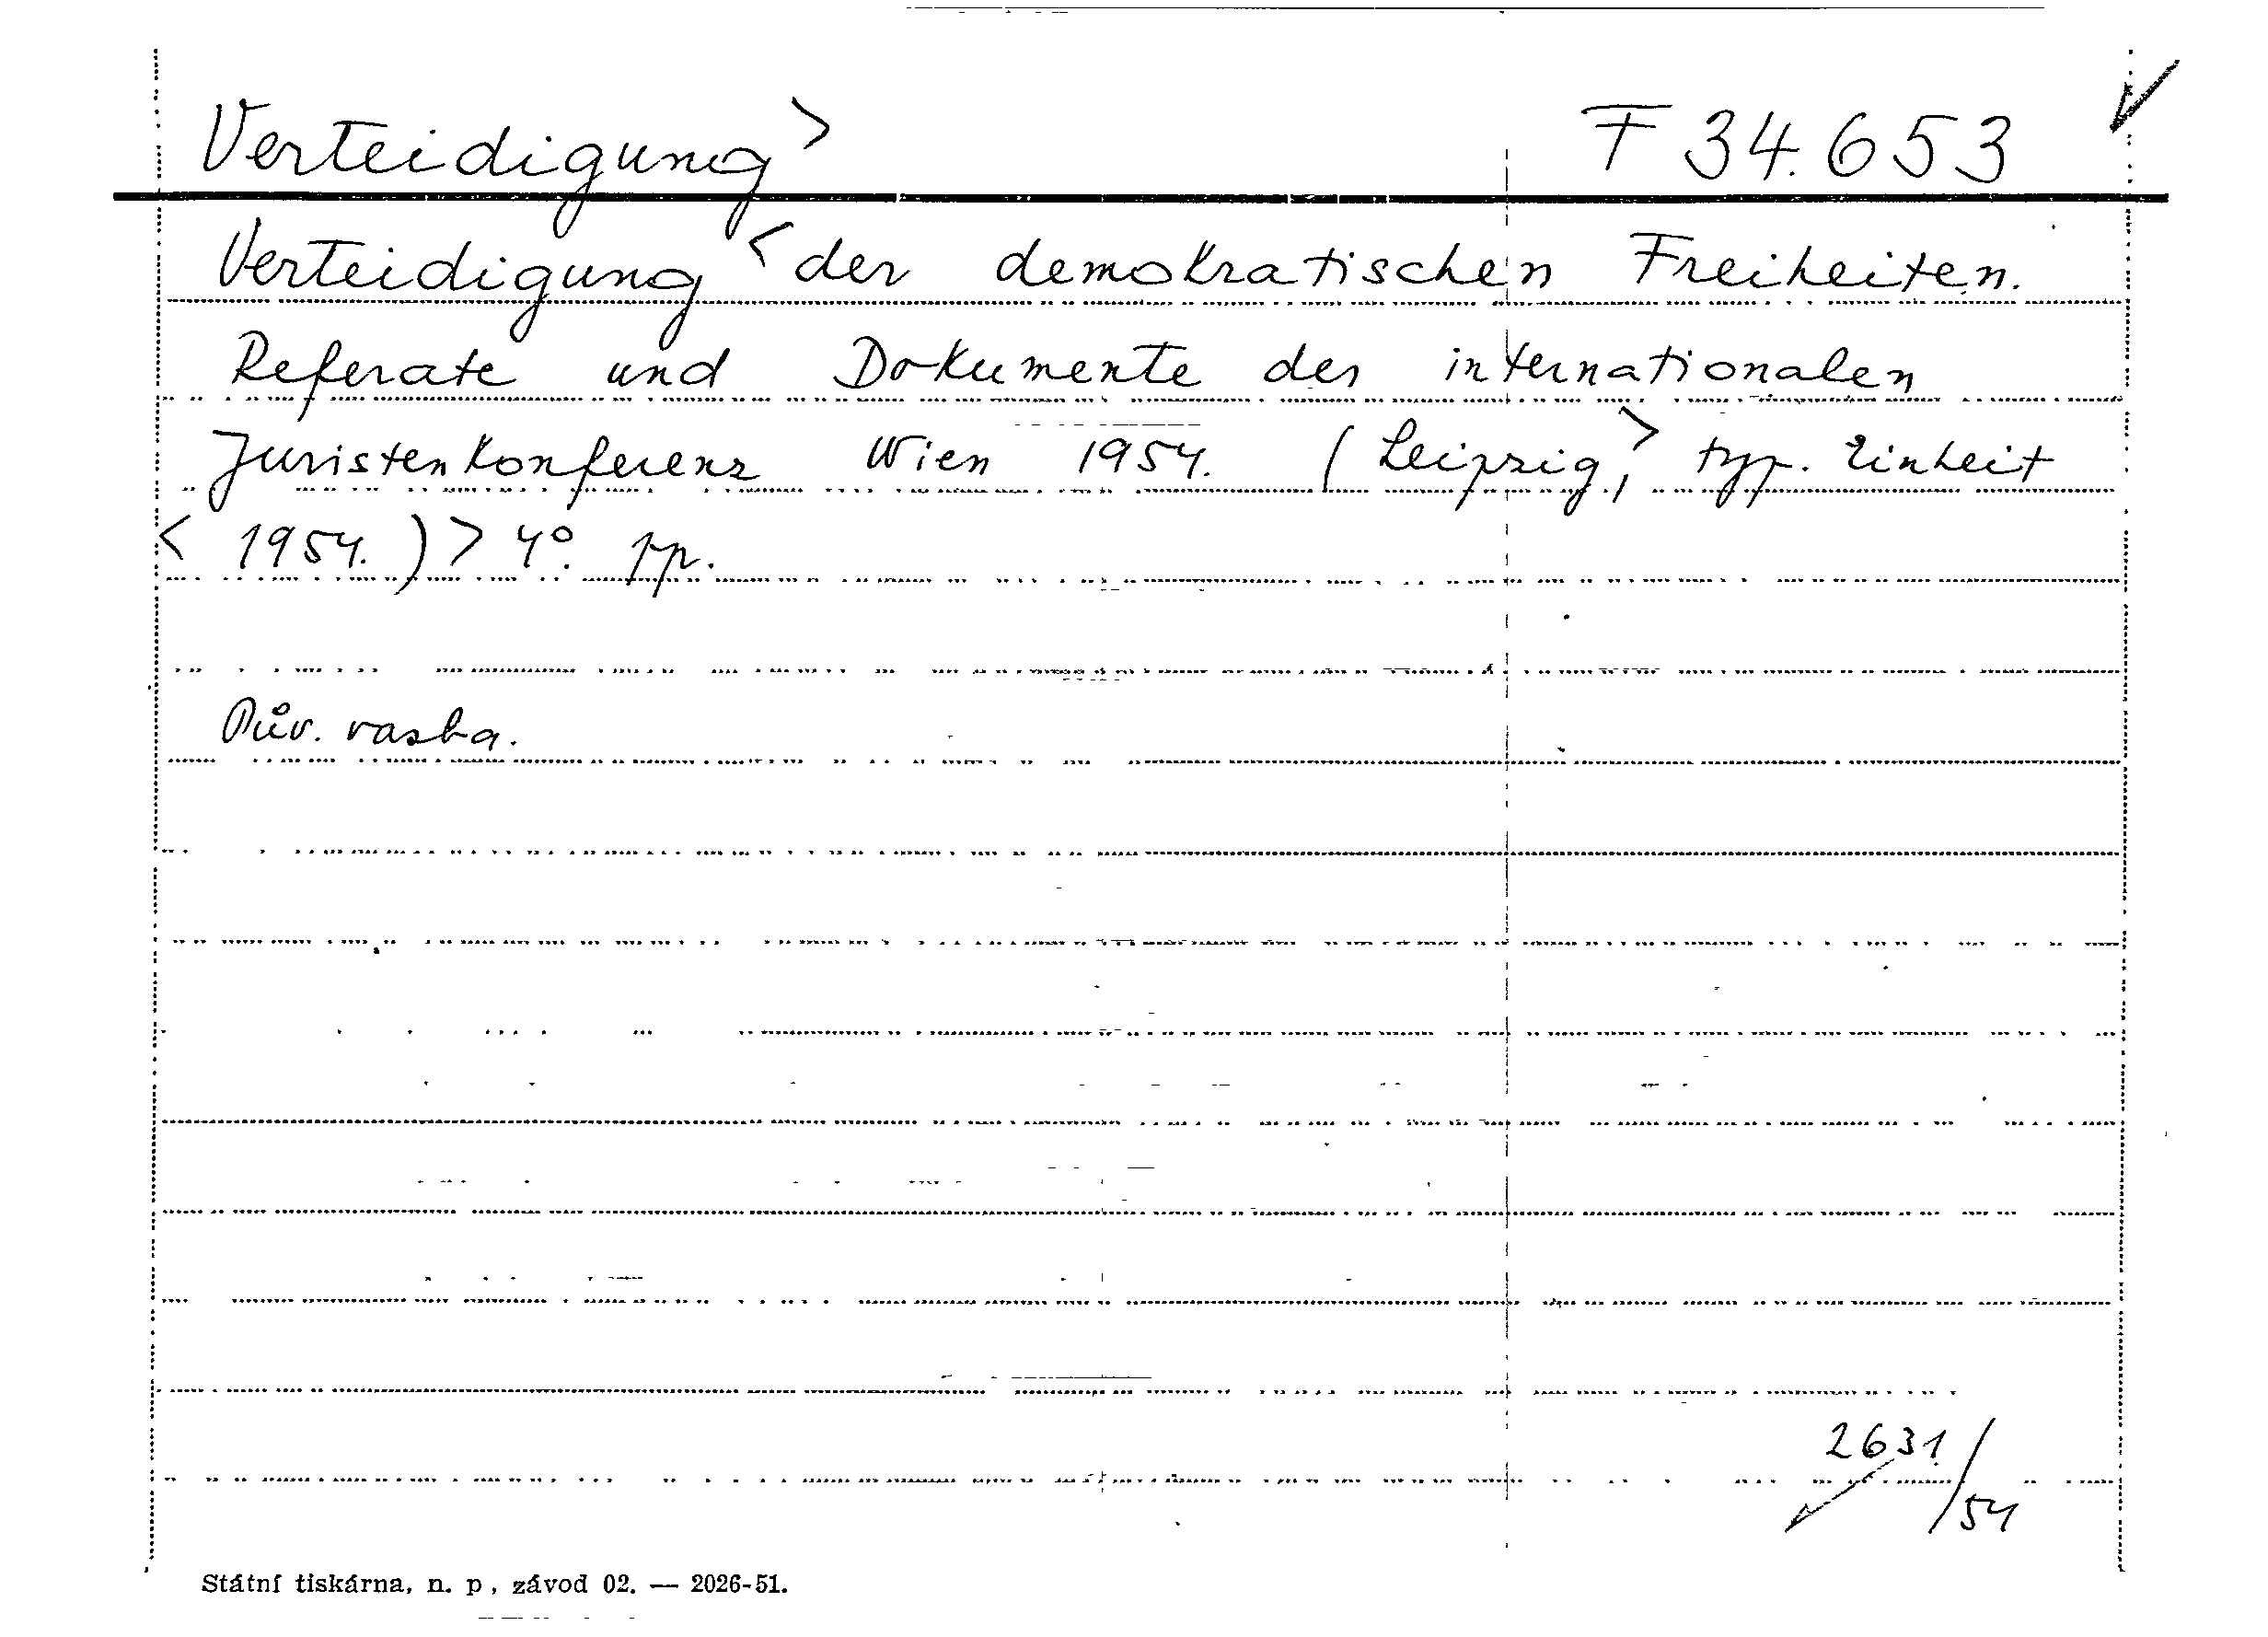 Verteidigung> F 34.653
Verteidigung <der demokratischen Freiheiten.
Referate und Dokumente der internationalen
Juristenkonferenz Wien 1954. (Leipzig,> typ. Einheit
< 1954.)> 4°. pp.
Pův. vazba.
2631/54
Státní tiskárna, n. p., závod 02. — 2026-51.